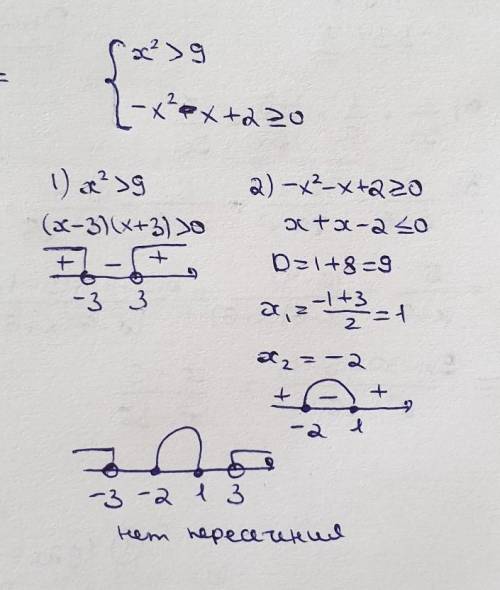 =
{ x² > 9
-x² - x + 2 ≥ 0
1) x² > 9
(x-3)(x+3) > 0
+ - +
-3 3
2) -x² - x + 2 ≥ 0
x + x - 2 ≤ 0
D = 1 + 8 = 9
x₁ = (-1+3)/2 = 1
x₂ = -2
+ - +
-2 1
-3 -2 1 3
нет пересечения